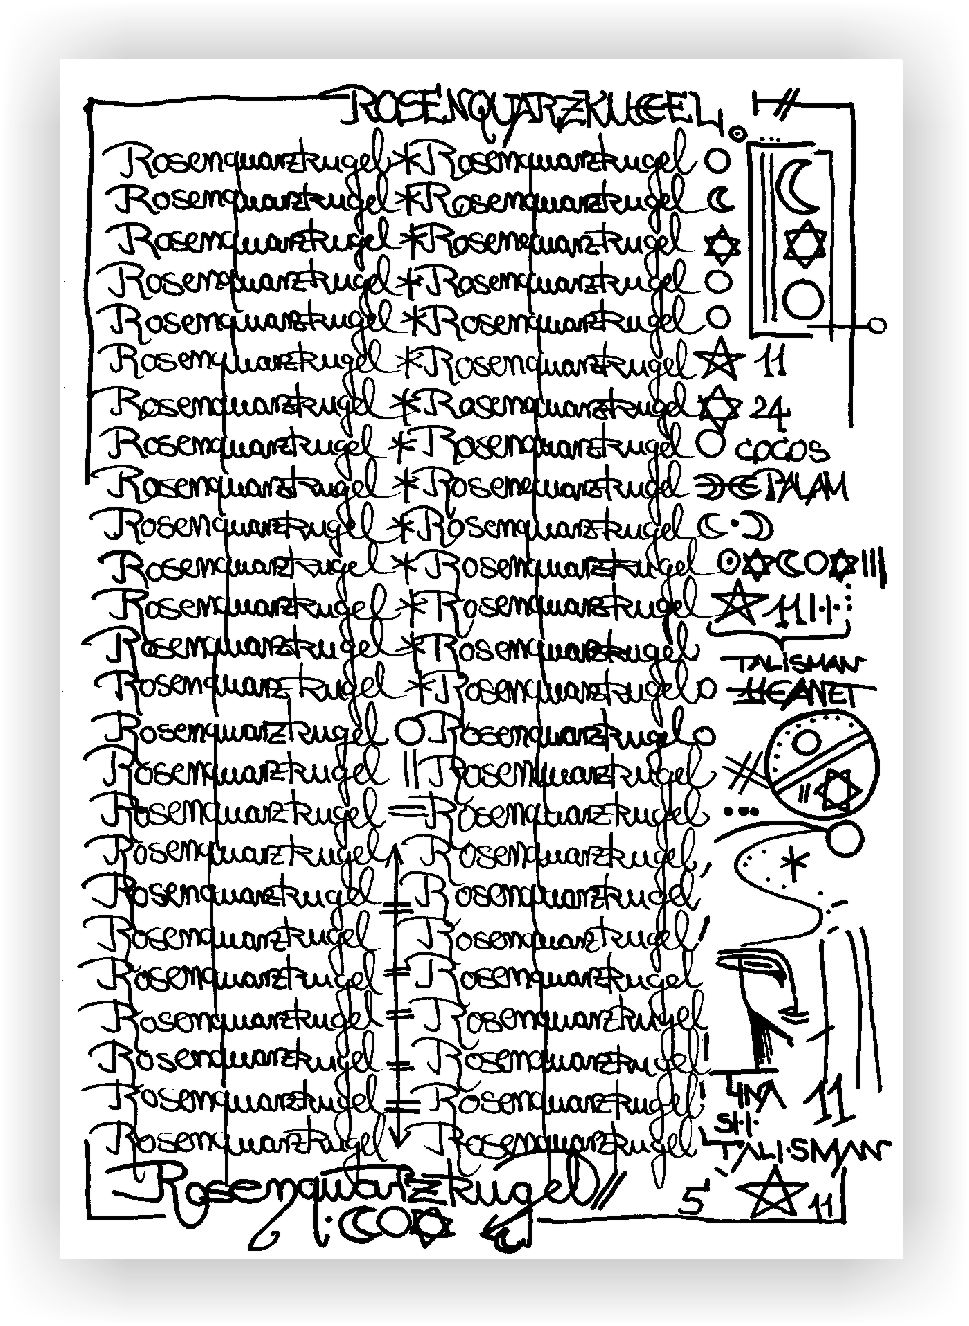 ROSENQUARZKUGEL
Rosenquarzkugel * Rosenquarzkugel
Rosenquarzkugel * Rosenquarzkugel
Rosenquarzkugel * Rosenquarzkugel
Rosenquarzkugel * Rosenquarzkugel
Rosenquarzkugel * Rosenquarzkugel
Rosenquarzkugel * Rosenquarzkugel 11
Rosenquarzkugel * Rosenquarzkugel 24
Rosenquarzkugel * Rosenquarzkugel COCOS
Rosenquarzkugel * Rosenquarzkugel PALAM
Rosenquarzkugel * Rosenquarzkugel
Rosenquarzkugel * Rosenquarzkugel
Rosenquarzkugel * Rosenquarzkugel 11
Rosenquarzkugel * Rosenquarzkugel TALISMAN
Rosenquarzkugel * Rosenquarzkugel
Rosenquarzkugel Rosenquarzkugel
Rosenquarzkugel Rosenquarzkugel
Rosenquarzkugel = Rosenquarzkugel
Rosenquarzkugel Rosenquarzkugel
Rosenquarzkugel Rosenquarzkugel
Rosenquarzkugel Rosenquarzkugel
Rosenquarzkugel Rosenquarzkugel
Rosenquarzkugel Rosenquarzkugel
Rosenquarzkugel Rosenquarzkugel
Rosenquarzkugel Rosenquarzkugel 11
Rosenquarzkugel Rosenquarzkugel TALISMAN
Rosenquarzkugel 5 11